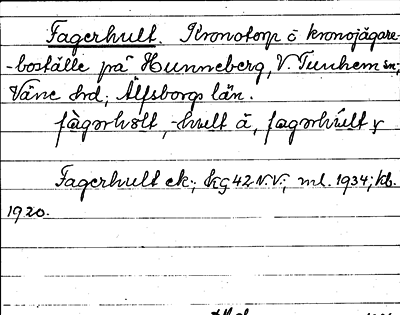 Fagerhult. Kronotorp o kronojägare-
-boställe på Hunneberg, V. Tunhem sn;
Väne hrd; Älfsborgs län.
fàgərhɵlt, -hult ä, fagərhúlt y
Fagerhult ek; kg 42 N.V; ml. 1934; kb.
1920.